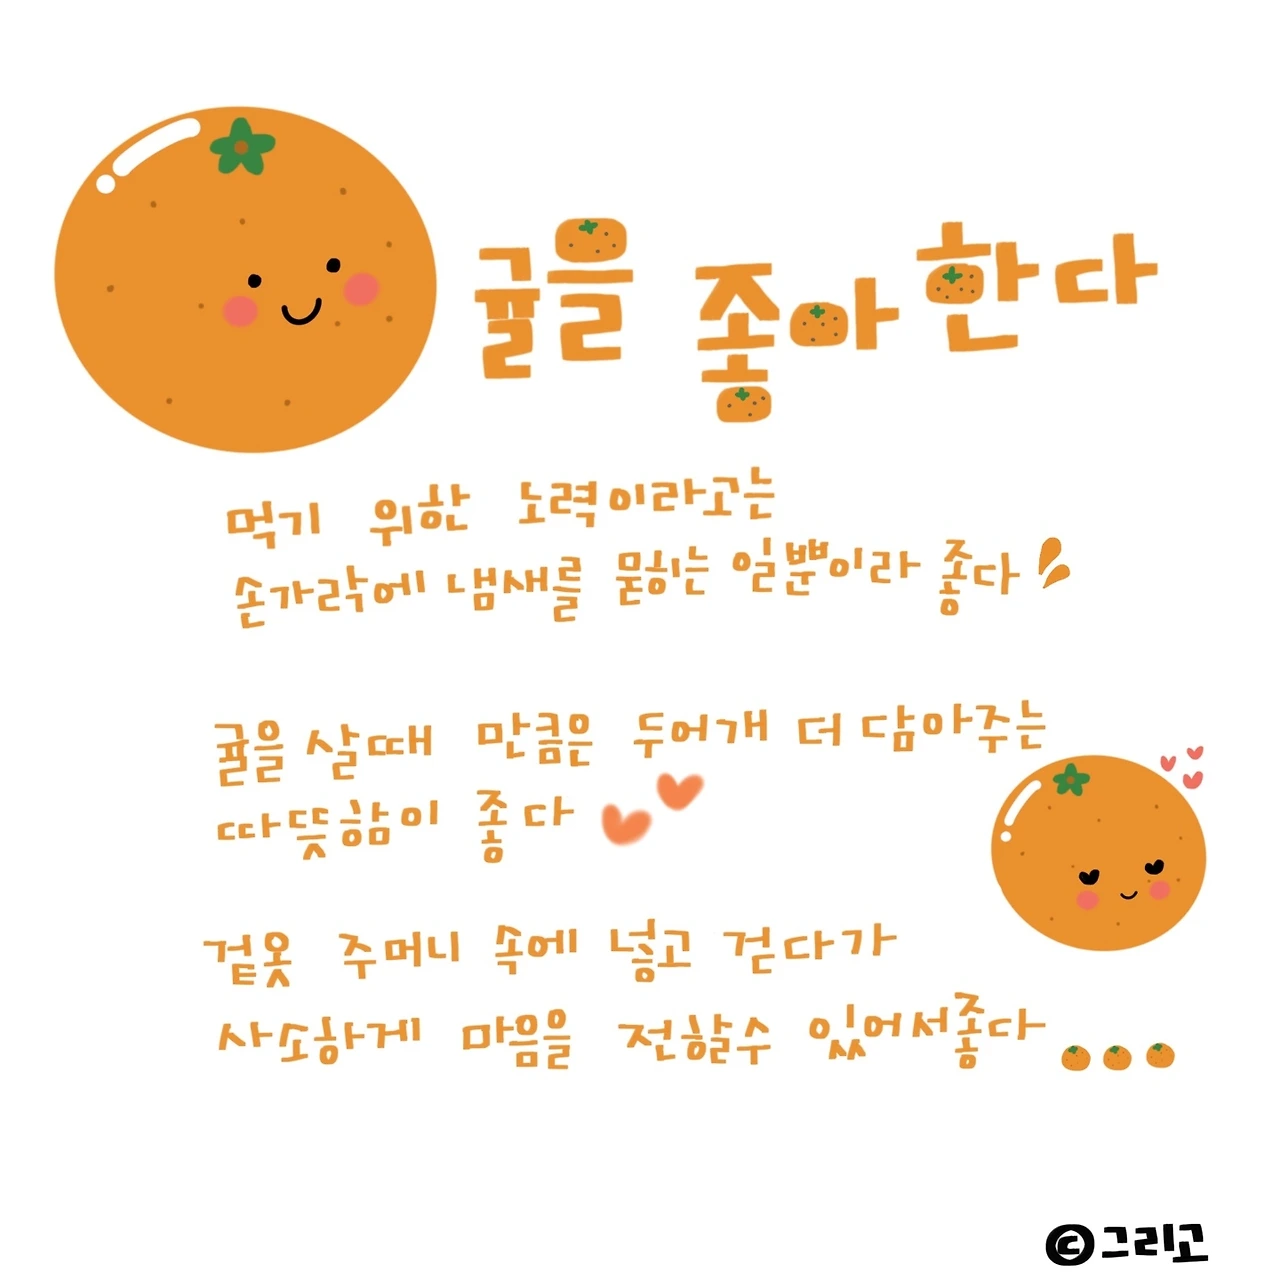 귤을 좋아한다
먹기 위한 노력이라고는
손가락에 냄새를 묻히는 일뿐이라 좋다
귤을 살때 만큼은 두어개 더 담아주는
따뜻함이 좋다
겉옷 주머니 속에 넣고 걷다가
사소하게 마음을 전할수 있어서좋다
©그리고